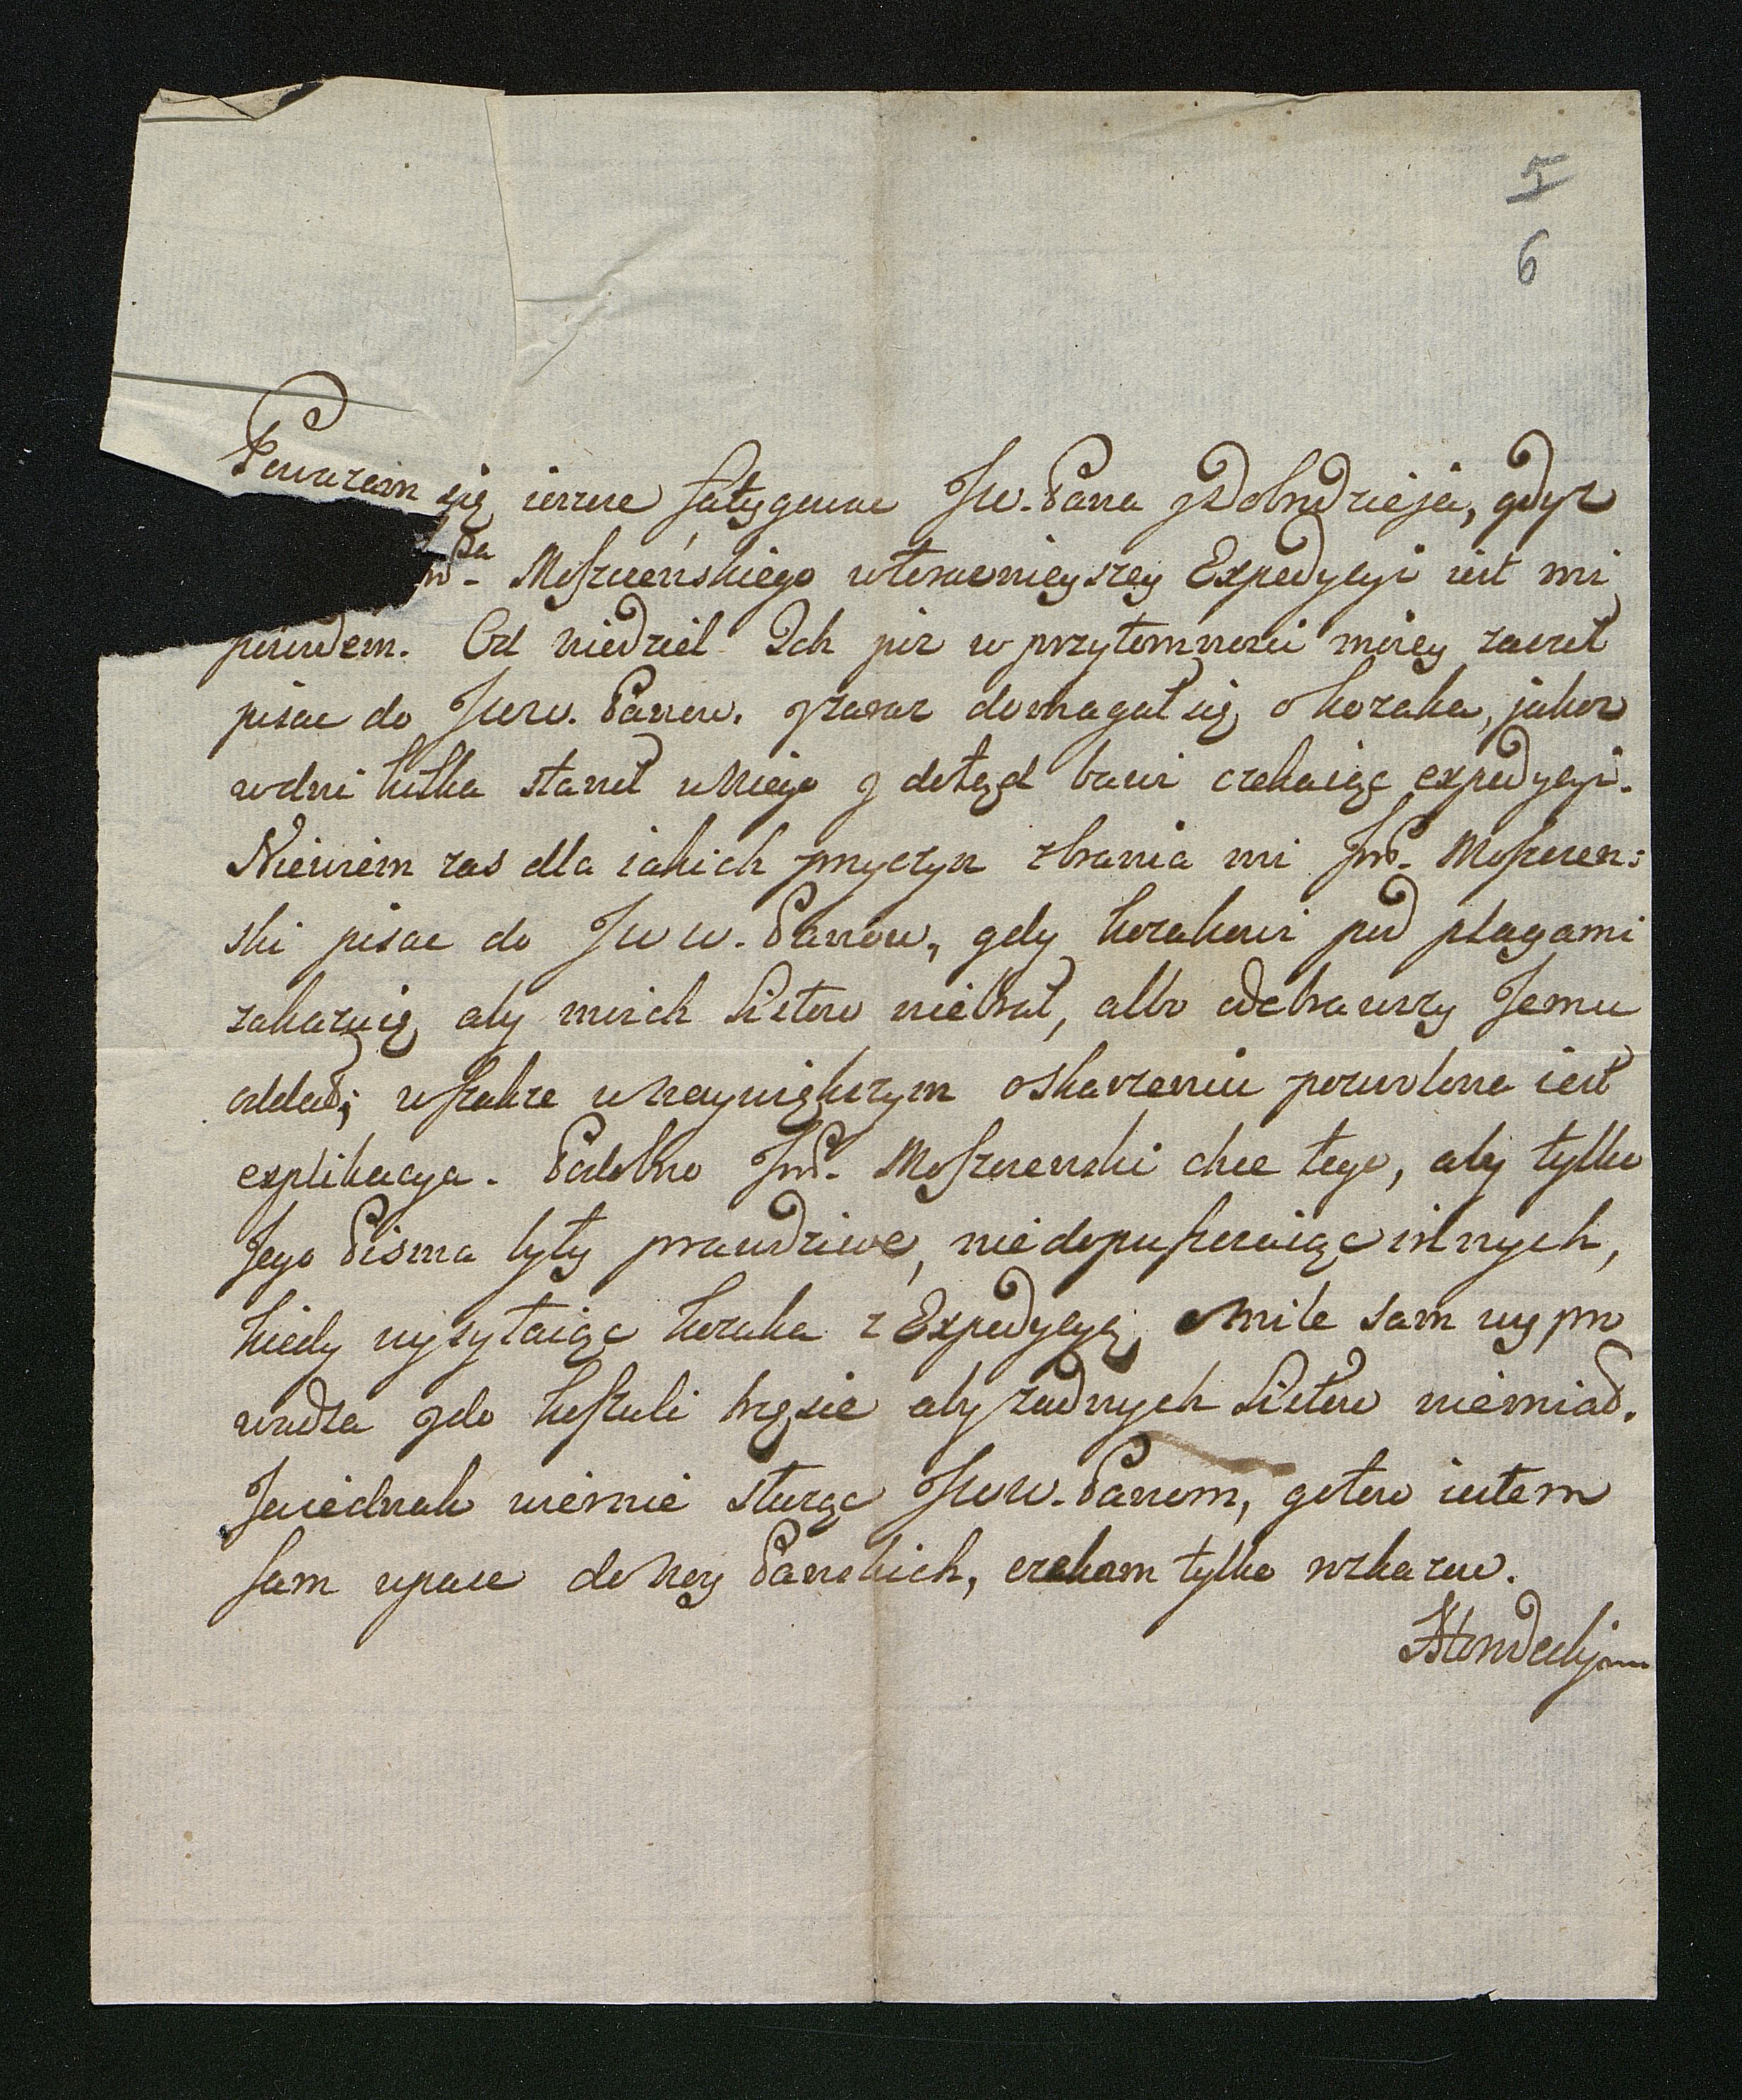 5
6
Poważam się ieszcze fatygować JW. Pana JDobrodzieja, gdyż
Moszczeńskiego wteraznieyszey Expedycyi iest mi
powodem. Od niedziel 2ch już w przytomnosci moiey zaczął
pisac do JWW. Panow. y zaraz domagał się o kozaka, jakoż
w dni kilka stanął u Niego y dotąd bawi czekaiąc expedycyi.
Niewiem zas dla iakich przyczyn zbrania mi Jmć. Moszczen:
ski pisac do JWW. Panow, gdy kozakowi pod plagami
zakazuię aby moich Listow niebrał, albo odebrawszy Jemu
oddał; wszakże w naywiększym oskarzeniu pozwolona iest
explikacya. Podobno Jmć. Moszczenski chce tego, aby tylko
Jego Pisma były prawdziwe, niedopuszczaiąc innych,
kiedy wysyłaiąc kozaka z Expedycyą, o mile sam wypro
wadza y do koszuli trzęsie aby żadnych Listow niemiał.
Ja iednak wiernie służąc JWW. Panom, gotow iestem
sam upasc do Nog Panskich, czekam tylko rozkazow.